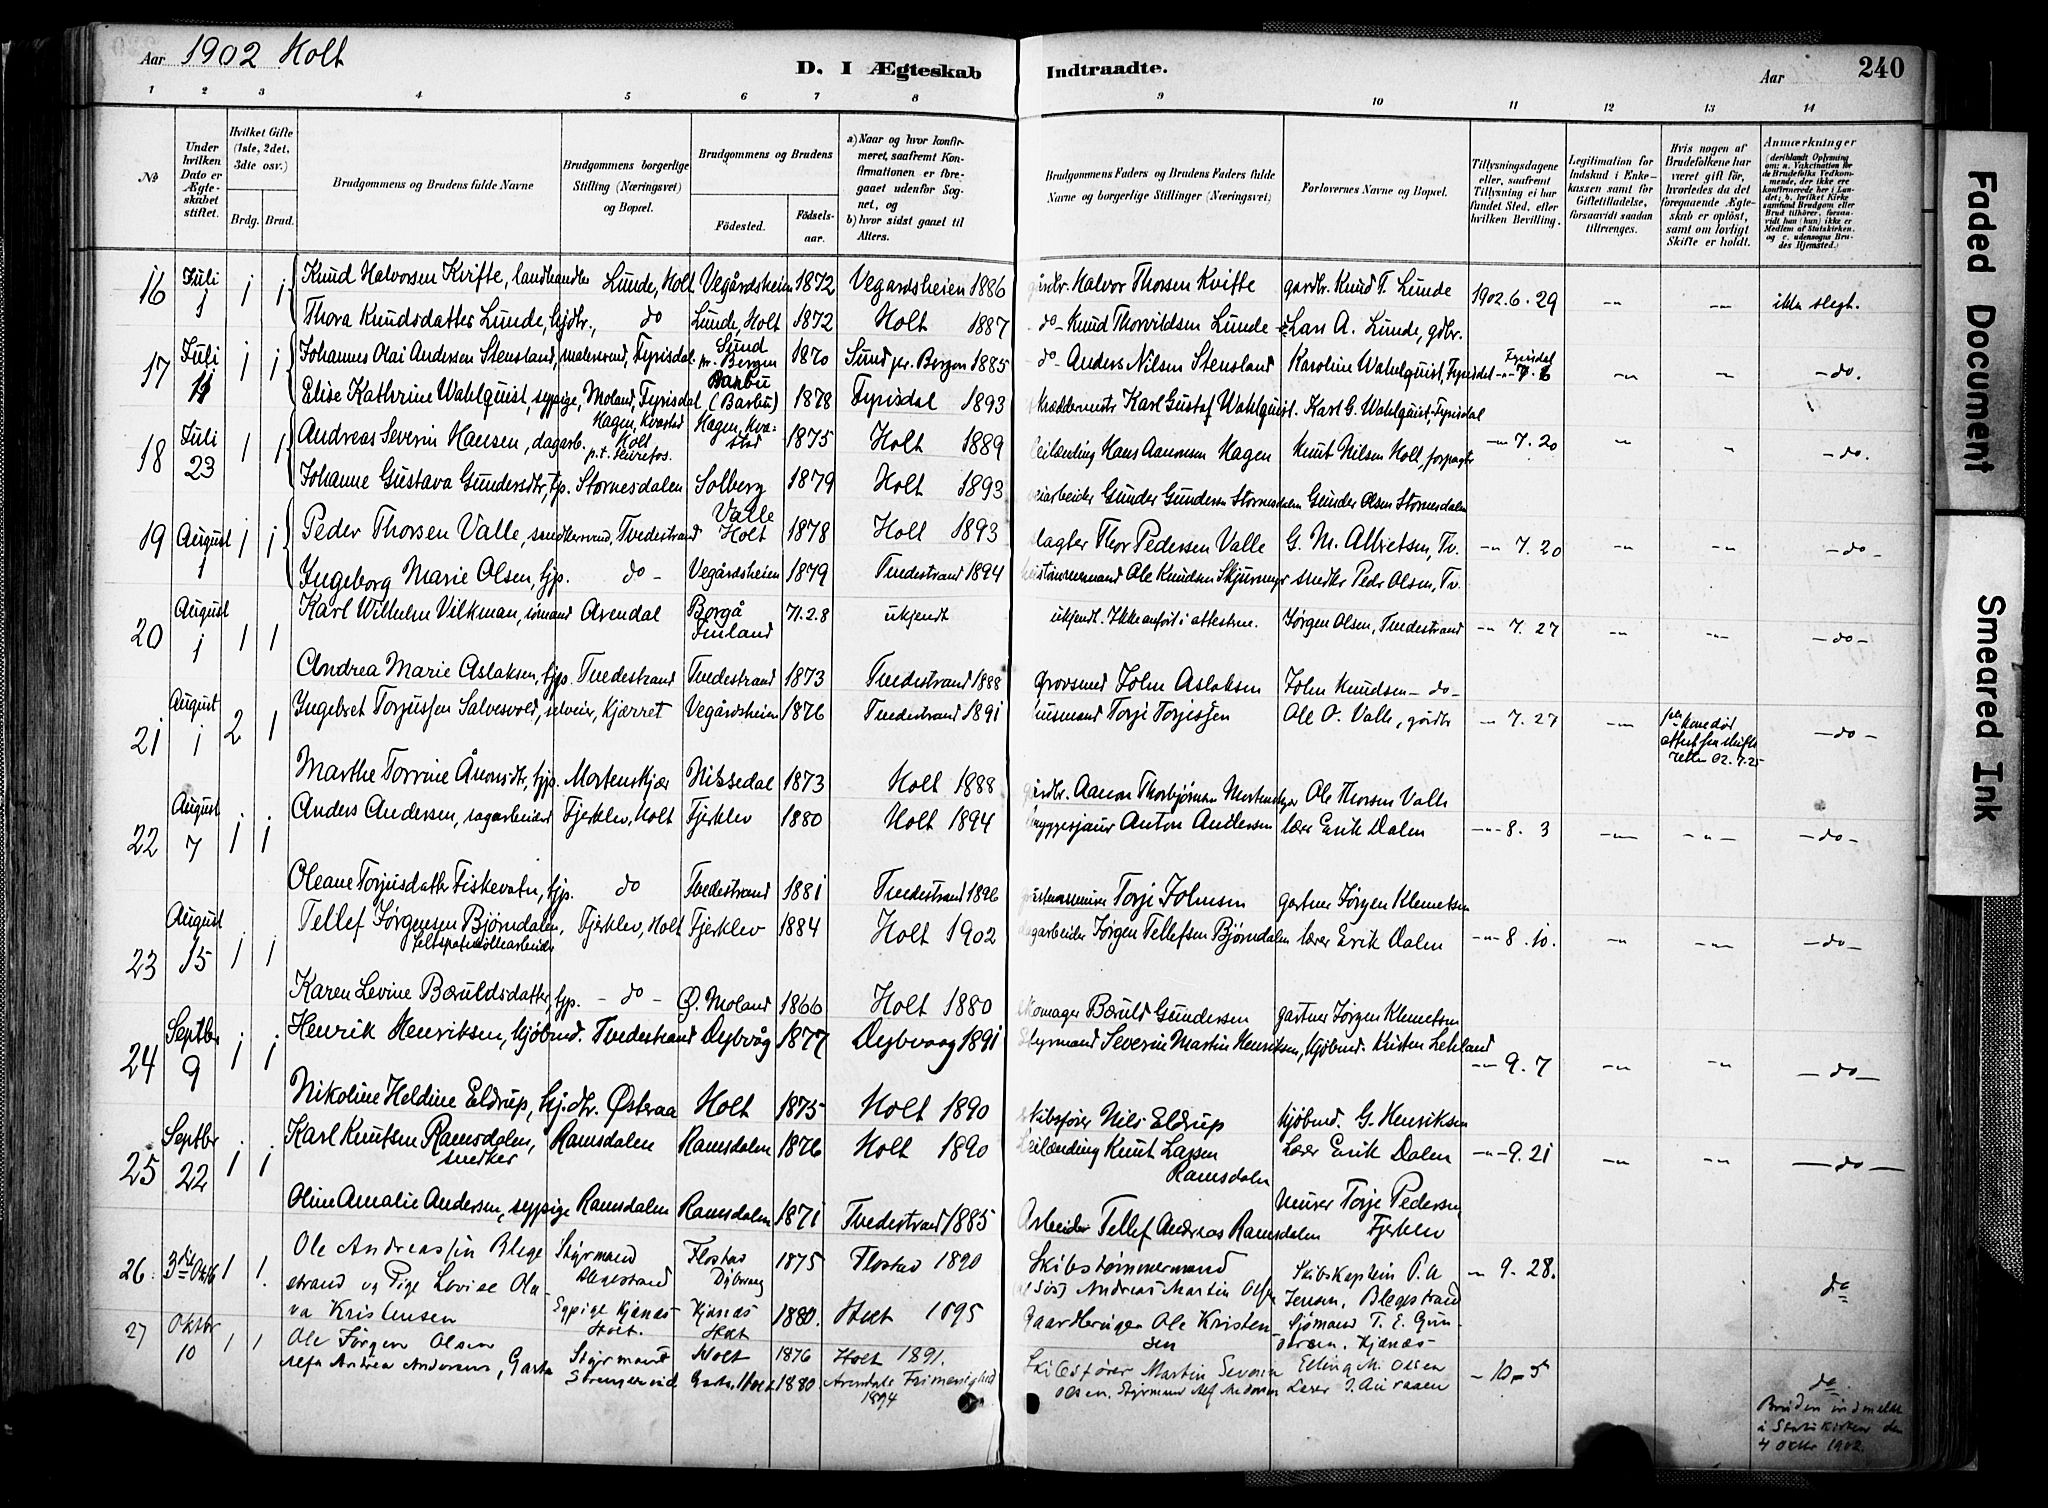 Aar 1902 Holt
D. I Ægteskab Indtraadte.
Aar 240
1 2 3 4 5 6 7 8 9 10 11 12 13 14
№
Under hvilken Dato er Ægteskabet stiftet.
Hvilket Gifte (1ste, 2det, 3dte osv.)
Brdg. Brud.
Brudgommens og Brudens fulde Navne
Brudgommens borgerlige Stilling (Næringsvei) og Bopæl.
Brudgommens og Brudens
Födested. Födselsaar.
a) Naar og hvor konfirmeret, saafremt Konfirmationen er foregaaet udenfor Sognet, og
b) hvor sidst gaaet til Alters.
Brudgommens Faders og Brudens Faders fulde Navne og borgerlige Stillinger (Næringsvei)
Forlovernes Navne og Bopæl.
Tillysningsdagene eller, saafremt Tillysning ei har fundet Sted, efter hvilken Bevilling.
Legitimation for Indskud i Enkekassen samt for Giftetilladelse, forsaavidt saadan tiltrænges.
Hvis nogen af Brudefolkene har været gift før, hvorledes da det foregaaende Ægteskab er oplöst, samt om lovligt Skifte er holdt.
Anmærkninger
16 Juli 1 1 1 Knud Halvorsen Kvifte, landhandler Lunde, Holt Vegårdsheien 1872 Vegardsheien 1886 gårdbr. Halvor Thorsen Kvifte gardbr. Knud T. Lunde 1902.6.29 -"- -"- ikke slegt.
Thora Knudsdatter Lunde, gjdtr., do Lunde, Holt 1872 Holt 1887 -do- Knud Thorvildsen Lunde Lars A. Lunde, gdbr.
17 Juli 11 1 1 Johannes Olai Andersen Stensland, malersvend, Fyrisdal Sund pr. Bergen 1870 Sund pr. Bergen 1885 do- Anders Nilsen Stensland Karoline Wahlquist, Fyrisdal Fyrisdal -"- 7.6 -"- -"- -do.
Elise Kathrine Wahlquist, sypige, Moland, Fyrisdal Barbu (Barbu) 1878 Fyrisdal 1893 skræddermstr Karl Gustaf Wahlquist. Karl G. Wahlquist, Fyrisdal
18 Juli 23 1 1 Andreas Severin Hansen, dagarb. Hagen, Kvastad Holt p.t. Hagen, Kvastad 1875 Holt 1889 leilænding Hans Aanonsen Hagen Knut Nilsen Holt, forpagter -"- 7.20 -"- -"- -do.
Johanne Gustava Gundersdtr, tjp. Stornesdalen Solberg 1879 Holt 1893 veiarbeider Gunder Gundersen Stornesdalen Gunder Olsen Stornesdalen
19 August 1 1 1 Peder Thorsen Valle, snedkersvend, Tvedestrand Valle Holt 1878 Holt 1893 slagter Thor Pedersen Valle G. M. Albretsen, Tv. -"- 7.20 -"- -"- -do-
Ingeborg Marie Olsen, tjp. do- Vegårdsheien 1879 Tvedestrand 1894 Ole Knudsen snedker Peder Olsen, Tv.
20 August 1 1 1 Karl Wilhelm Vilkman, sömand Arendal Borgå Finland 71.2.8 ukjendt ukjendt. Ikke anført i attesterne. Jørgen Olsen, Tvedestrand -"- 7.27 -"- -"- -do-
Andrea Marie Aslaksen, tjp. Tvedestrand Tvedestrand 1873 Tvedestrand 1888 grovsmed John Aslaksen John Knudsen -do-
21 August 1 2 1 Ingebret Torjussen Salvesvold, selveier, Kjærret Vegårdsheien 1876 Tvedestrand 1891 husmand Torje Torjussen Ole O. Valle, gårdbr -"- 7.27 -"- 1ste kone död attest fra skifteretten 02.7.25 -do-
Marthe Torrine Ånonsdtr, tjp. Mortenskjær Nissedal 1873 Holt 1888 gårdbr. Aanon Thorbjørnsen Mortenskjær Ole Thorsen Valle
22 August 7 1 1 Anders Andersen, sagarbeider Fjerklev, Holt Fjerklev 1880 Holt 1894 bryggesjauer Anton Andersen lærer Erik Dalen -"- 8.3 -"- -"- -do-
Oleane Torjusdatter Fiskevatn, tjp. do Tvedestrand 1881 Tvedestrand 1896 Torje Johnsen gartner Jørgen Klemetsen
23 August 15 1 1 Tellef Jørgensen Bjørndalen, feltspatmöllearbeider Fjerklev, Holt Fjerklev 1884 Holt 1902 dagarbeider Jørgen Tellefsen Bjørndalen lærer Erik Dalen -"- 8.10. -"- -"- -do-
Karen Levine Bæruldsdatter, tjp. -do- Ø. Moland 1866 Holt 1880 skomager Bæruld Gundersen gartner Jørgen Klemetsen
24 Septbr 9 1 1 Henrik Henriksen, kjøbmd. Tvedestrand Dybvåg 1877 Dybvaag 1891 Styrmand Severin Martin Henriksen, kjøbmd. Kristen Lehland -"- 9.7 -"- -"- -do-
Nikoline Heldine Eldrup, hj.dtr. Østeraa Holt 1875 Holt 1890 skibsfører Nils Eldrup kjøbmd. G. Henriksen
25 Septbr 22 1 1 Karl Knutsen Ramsdalen, snedker Ramsdalen Ramsdalen 1876 Holt 1890 Leilænding Knut Larsen Ramsdalen Lærer Erik Dalen -"- 9.21 -"- -"- -do-
Oline Amalie Andersen, sypige Ramsdalen Ramsdalen 1871 Tvedestrand 1885 Arbeider Tellef Andreas Ramsdalen Murer Torje Pedersen, Fjerklev
26. 3die Oktb 1 1. Ole Andreassen Blegestrand og Pige Lovise Olava Kristensen Styrmand Blegestrand Flostad Dybvaag 1875 Flostad 1890 Skibstømmermand Andreas Martin Olsen Skibskaptein P. A Jensen, Blegestrand -"- 9.28. do
Sypige Kjenæs Holt. Kjenæs Holt 1880. Holt 1895 Gaardbruger Ole Kristensen Sjömand T. E. Gundersen, Kjenæs
27 Oktbr 10 1 1 Ole Jørgen Olsen Styrmand Holt 1876 Holt 1891. Skibsfører Martin Severin Olsen, Elling M. Olsen - 10-5 do
Alfa Andrea Andersen, Garta Garta, Holt 1880 Arendals Frimenighed 1894 Styrmand Alf Andersen Lærer J. Auraaen
Bruden indmeldt i Statskirken den 4 Oktbr 1902.
Faded Document
Smeared Ink